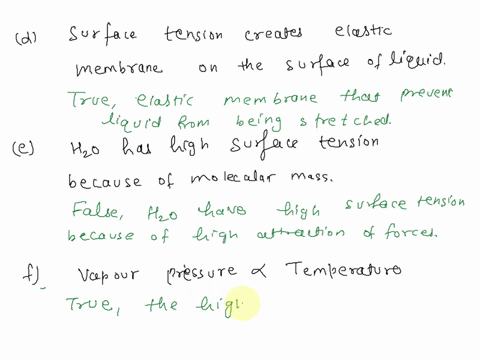 (d) Surface tension creates elastic
membrane on the surface of liquid.
True, elastic membrane that prevent
liquid from being stretched.
(e) H2O has high surface tension
because of molecular mass.
False, H2O have high surface tension
because of high attraction of forces.
f) Vapour pressure ∝ Temperature
True, the high